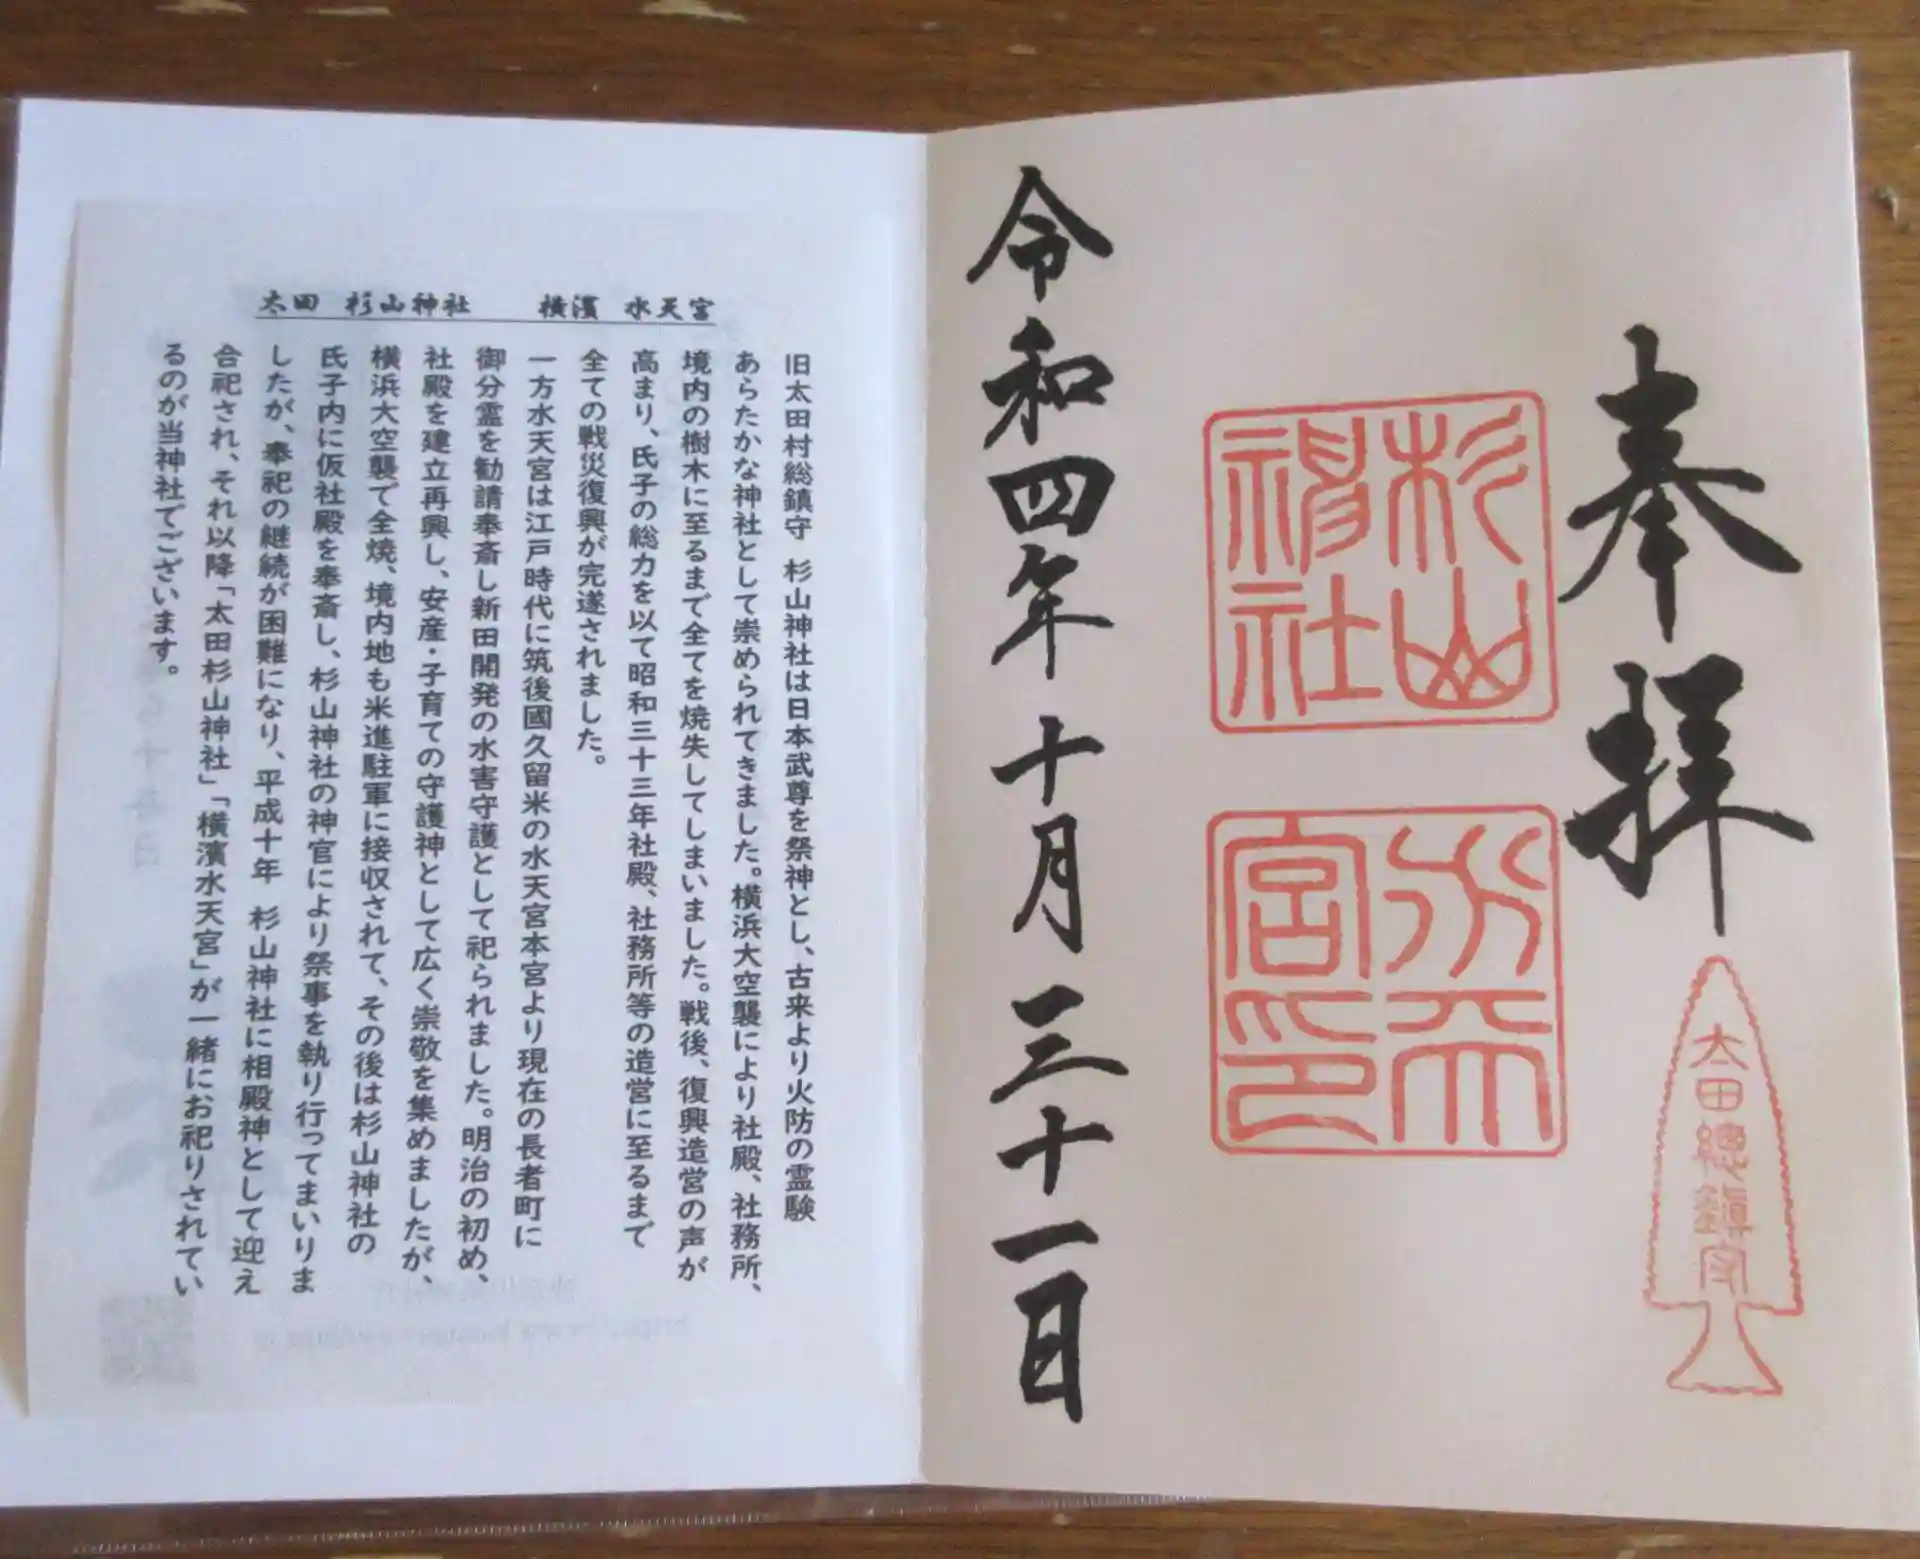 奉拝
杉山
神社
水天
宮印
太田總鎮守
令和四年十月三十一日
太田 杉山神社 横濱 水天宮
旧太田村総鎮守 杉山神社は日本武尊を祭神とし、古来より火防の霊験
あらたかな神社として崇められてきました。横浜大空襲により社殿、社務所、
境内の樹木に至るまで全てを焼失してしまいました。戦後、復興造営の声が
高まり、氏子の総力を以て昭和三十三年社殿、社務所等の造営に至るまで
全ての戦災復興が完遂されました。
一方水天宮は江戸時代に筑後國久留米の水天宮本宮より現在の長者町に
御分霊を勧請奉斎し新田開発の水害守護として祀られました。明治の初め、
社殿を建立再興し、安産・子育ての守護神として広く崇敬を集めましたが、
横浜大空襲で全焼、境内地も米進駐軍に接収されて、その後は杉山神社の
氏子内に仮社殿を奉斎し、杉山神社の神官により祭事を執り行ってまいりま
したが、奉祀の継続が困難になり、平成十年 杉山神社に相殿神として迎え
合祀され、それ以降「太田杉山神社」「横濱水天宮」が一緒にお祀りされてい
るのが当神社でございます。